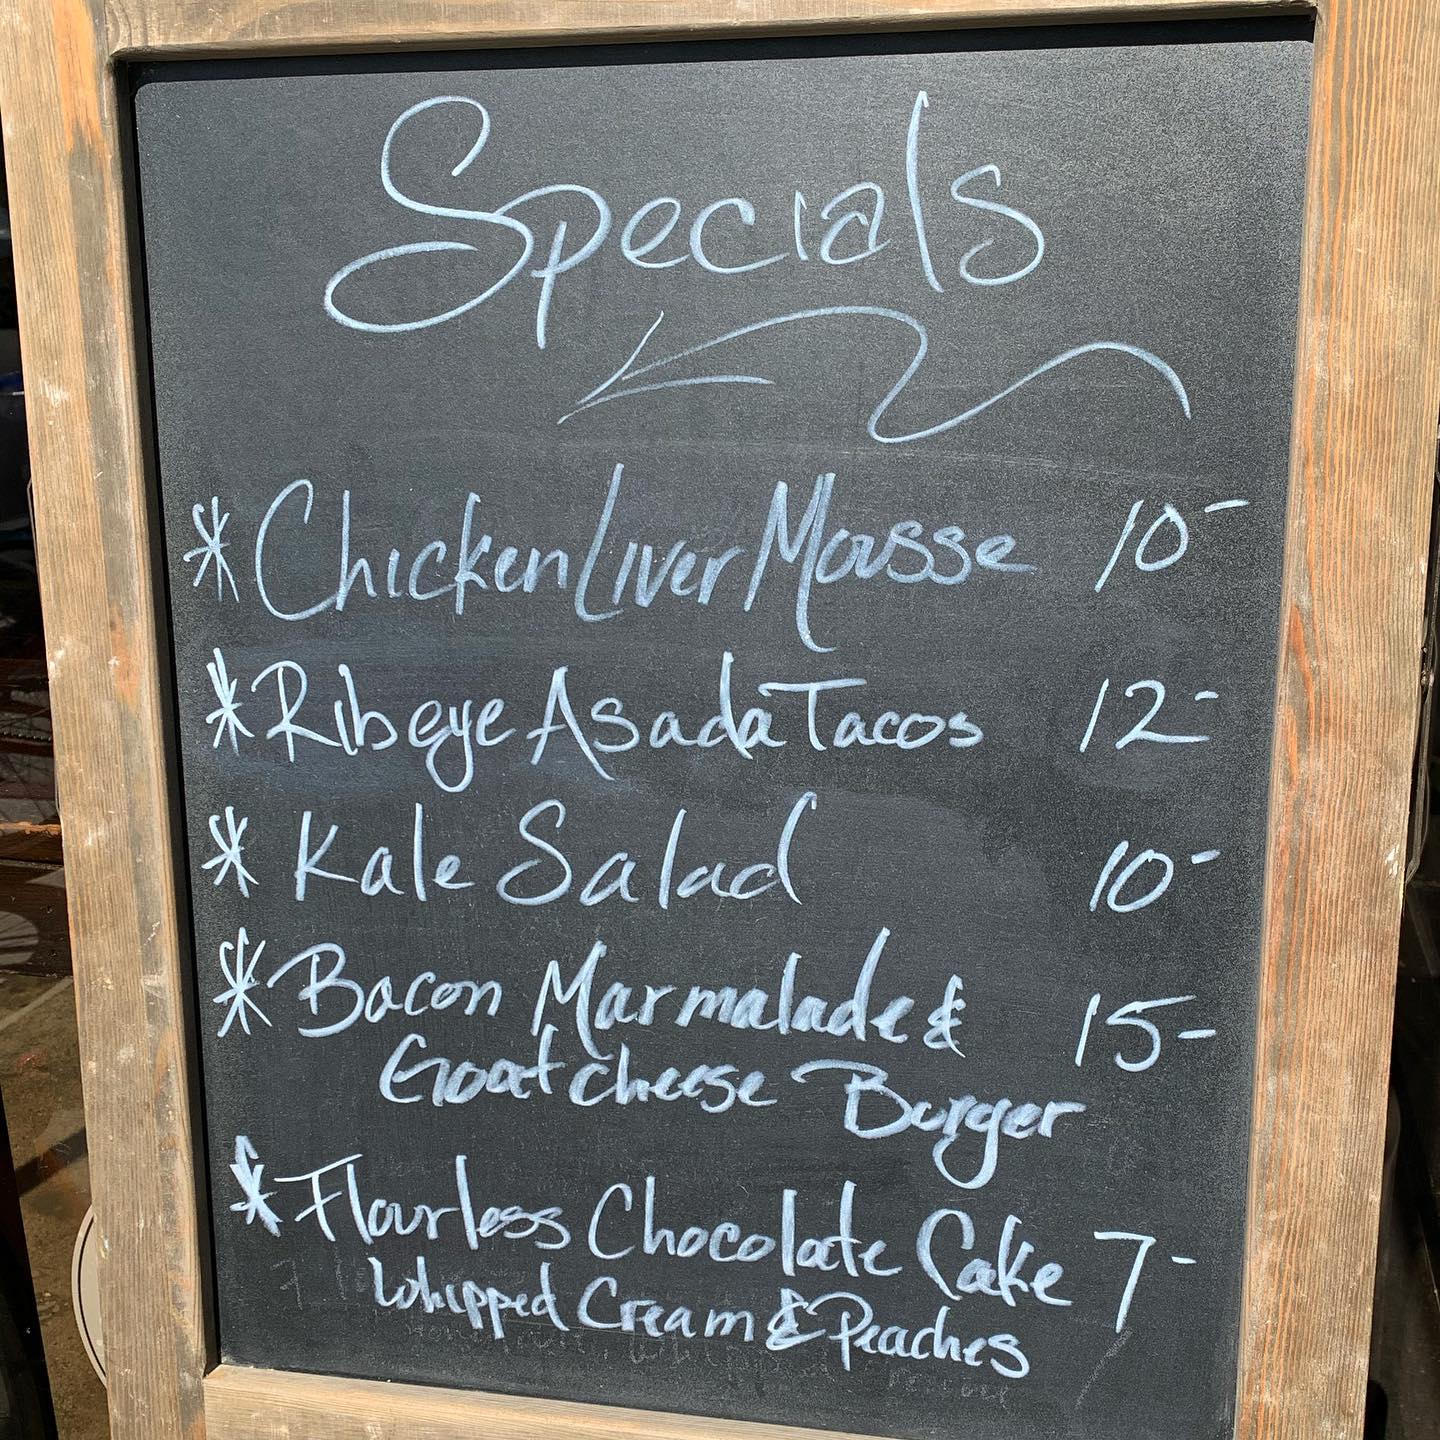 Specials
* Chicken Liver Mousse 10-
* Ribeye Asada Tacos 12-
* Kale Salad 10-
* Bacon Marmalade & 15-
Goat cheese Burger
* Flourless Chocolate Cake 7-
Whipped Cream & Peaches